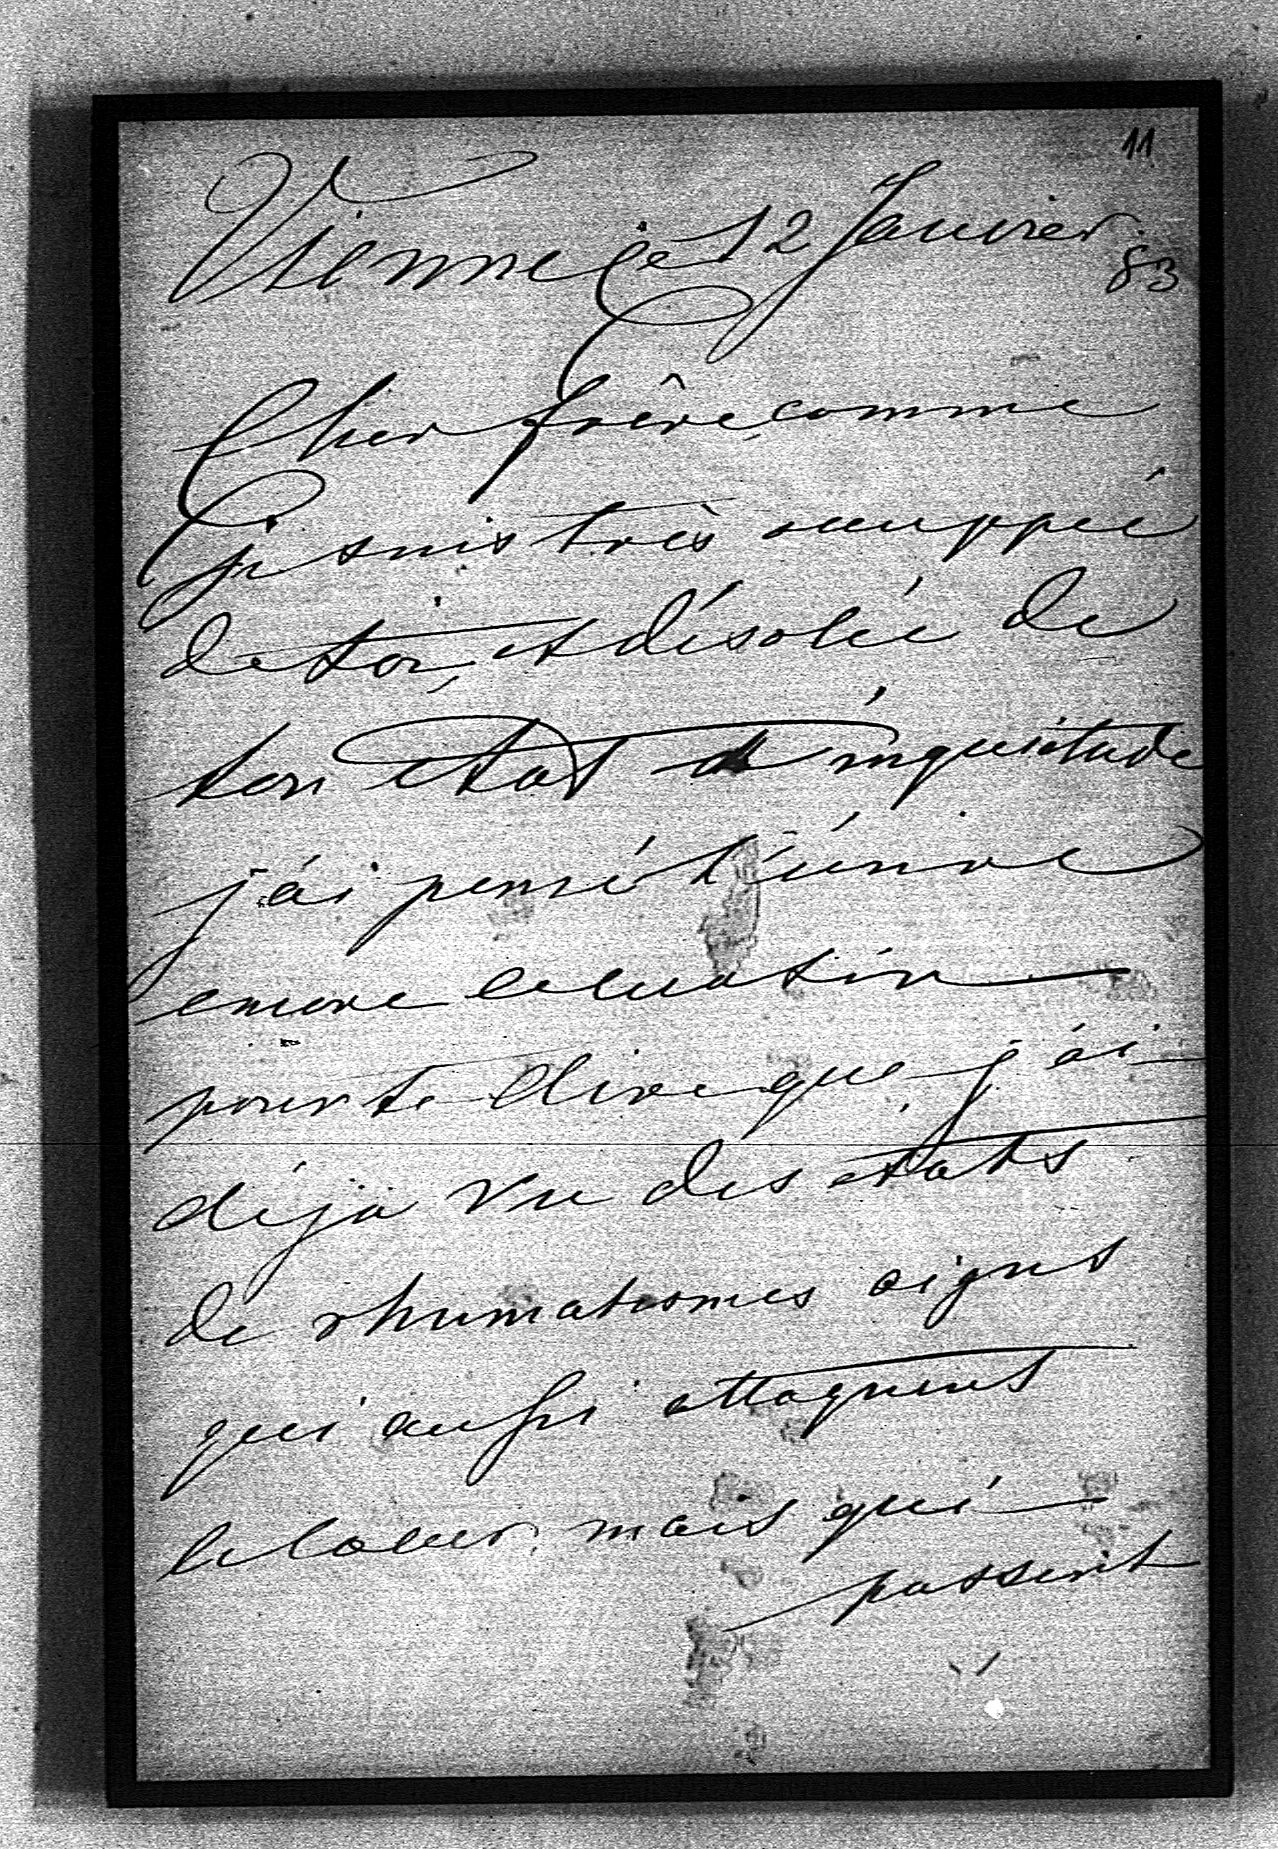 11
Vienne ce 12 Janvier
83
Cher frère, comme
je suis très occuppée
de toi, et désolée de
ton état d'inquiétude
j'ai pensé t'écrire
encore ce matin
pour te dire que j'ai
déja vu des états
de rhumatismes aigus
qui aussi attaquent
le coeur, mais qui
passent